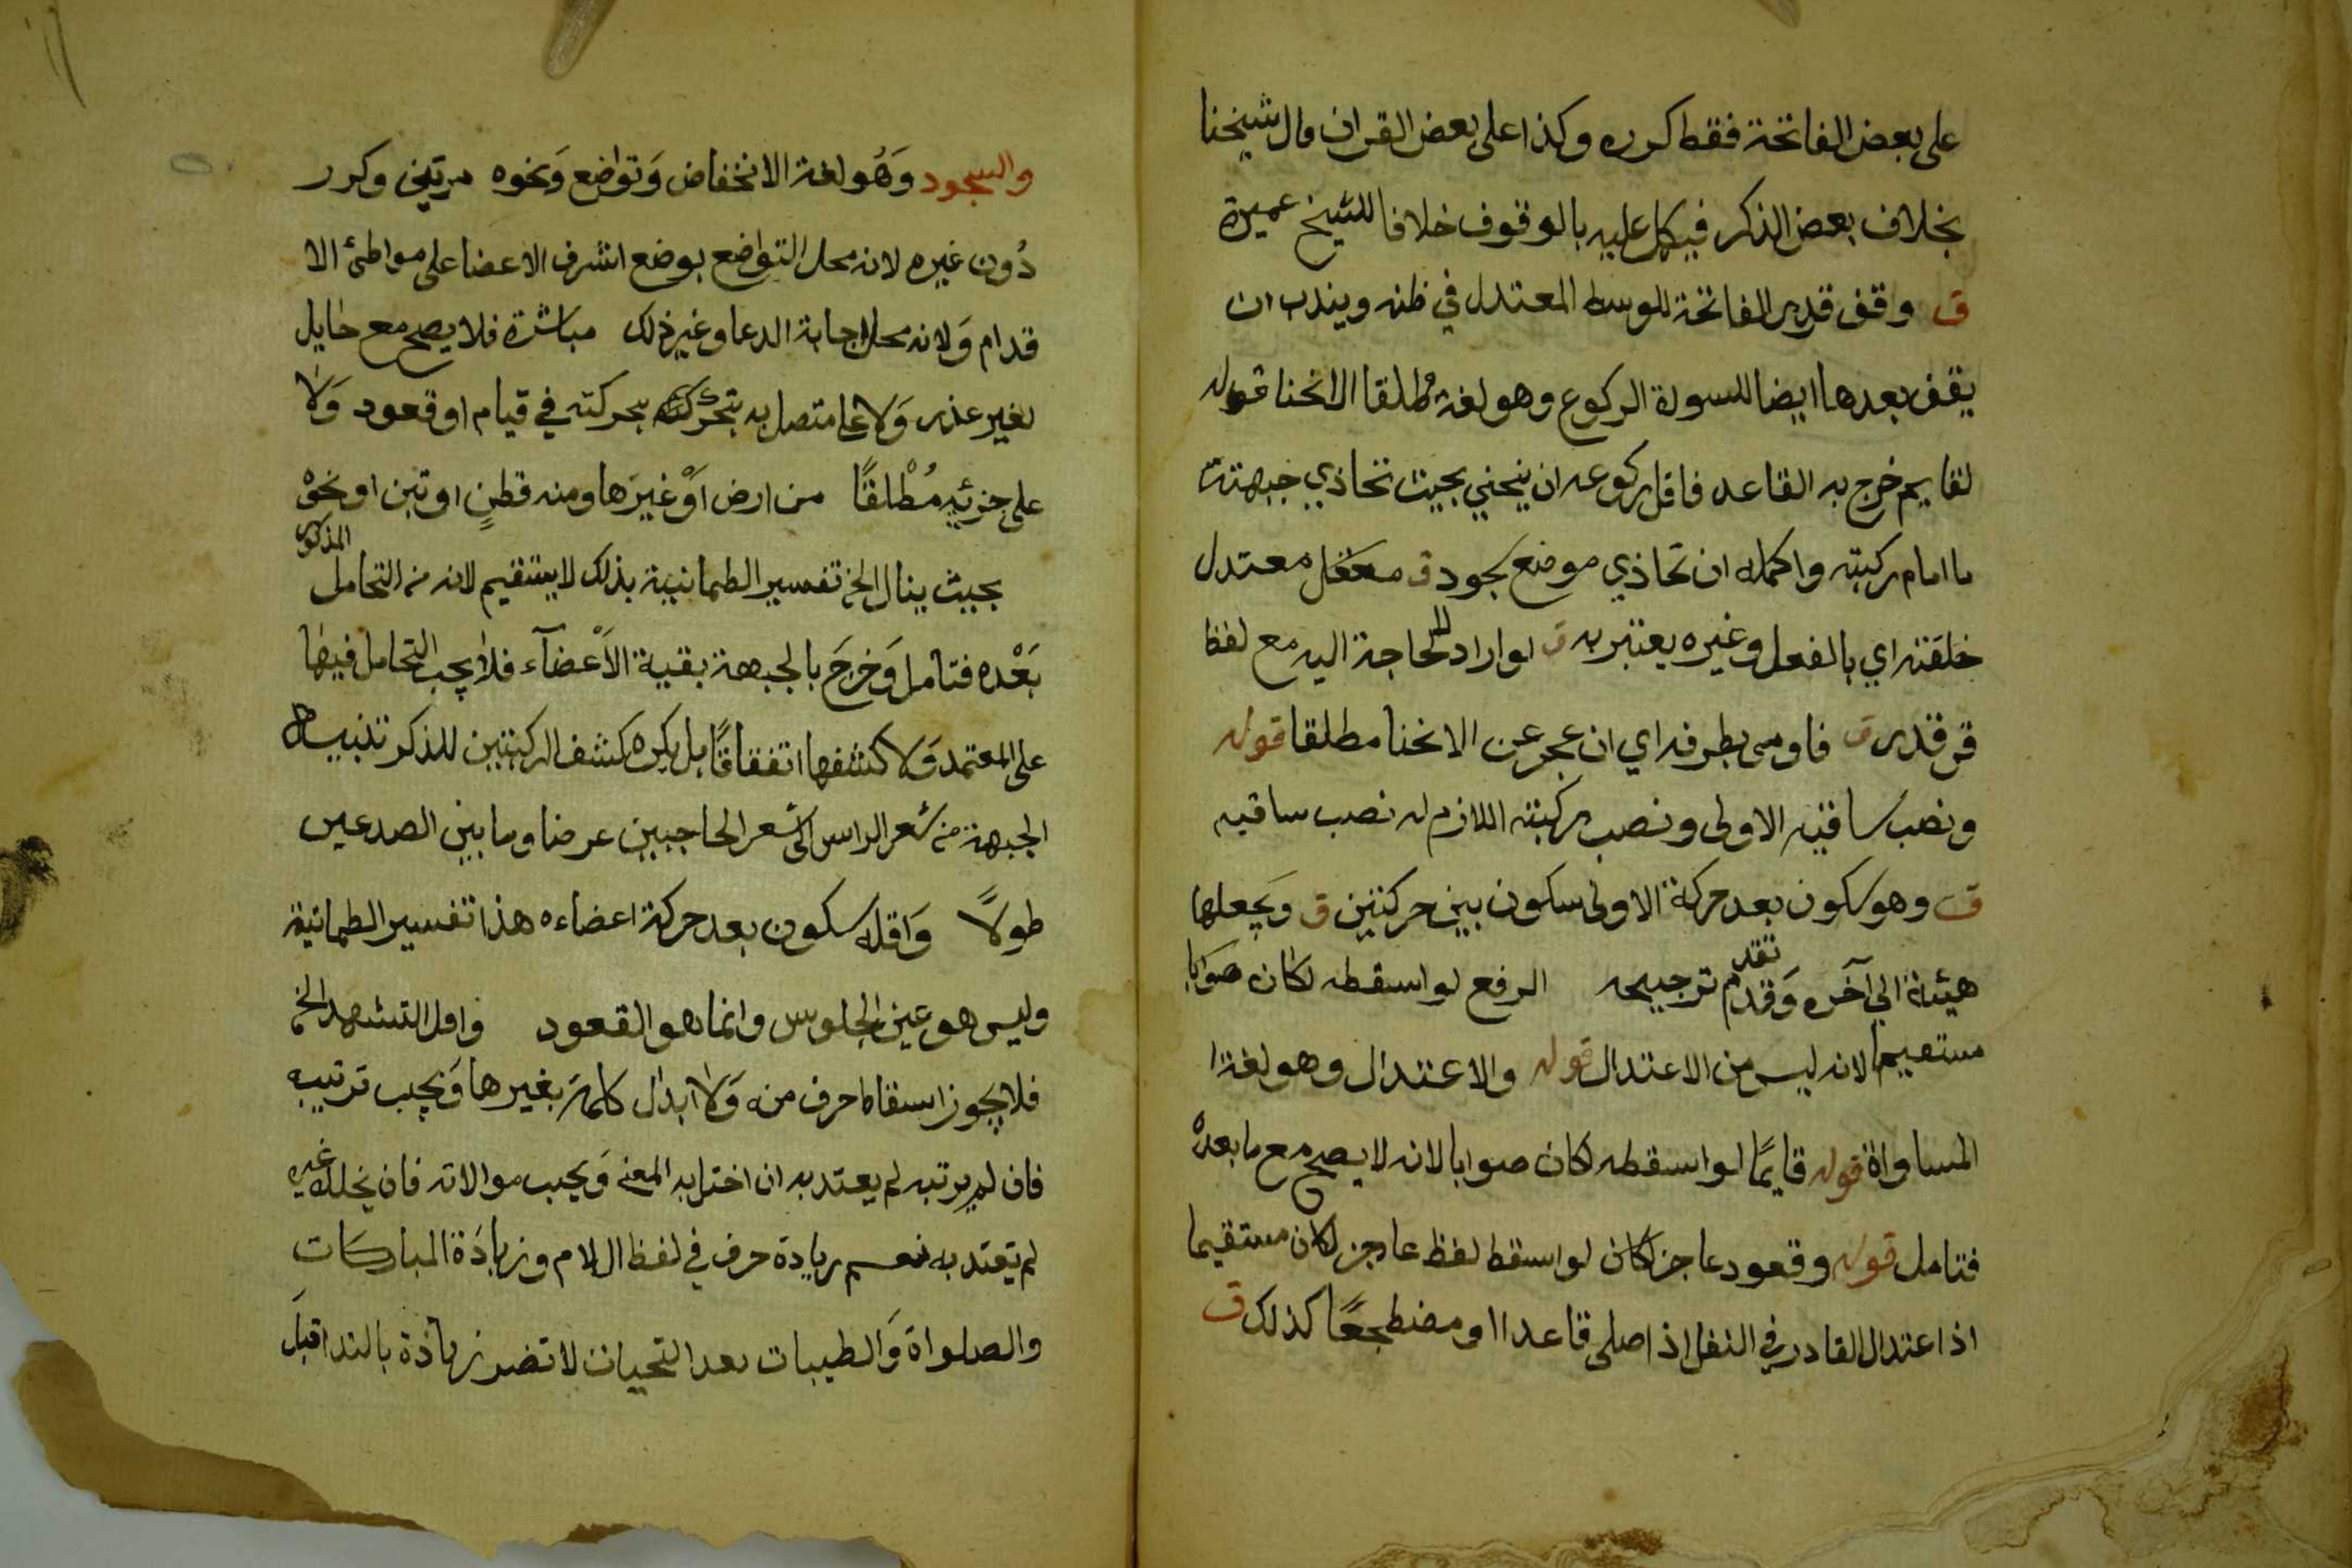 على بعض الفاتحة فقط كرره وكذا على بعض القران قال شيخنا
بخلاف بعض الذكر فيكمل عليه بالوقوف خلافا للشيخ عميرة
ق وقف قدر الفاتحة للوسط المعتدل في ظنه ويندب ان
يقف بعدها ايضا للسورة الركوع وهو لغة مطلقا الانحنا قوله
لقايم خرج به القاعد فاقل ركوعه ان ينحني بحيث تحاذي جبهته
ما امام ركبته واكمله ان تحاذي موضع سجود ق معتدل
خلقته اي بالفعل وغيره يعتبر به ق لو اراد لا حاجة اليه مع لفظ
قدر ق فاومى بطرفه اي ان عجز عن الانحنا مطلقا قوله
ونصب ساقيه الاولى ونصب ركبته اللازم له نصب ساقيه
ق وهو سكون بعد حركة الاولى سكون بين حركتين ق ويجعلها
هيئة الي آخره وقد تقدم ترجيحه الرفع لو اسقطه لكان صوابا
مستقيما لانه ليس من الاعتدال قوله والاعتدال وهو لغة ا
المساواة قوله قايمًا لو اسقطه لكان صوابا لانه لا يصح مع ما بعده
فتامل قوله وقعود عاجز كان لو اسقط لفظ عاجز لكان مستقيما
اذ اعتدال القادر في النفل اذا صلى قاعدا او مضطجعًا كذلك ق
والسجود وَهُو لغة الانخفاض وَتواضع وَنحوه مرتين وكرر
دُون غيره لانه محل التواضع بوضع اشرف الاعضا على مواطئ الا
قدام وَلانه محل اجابة الدعا وغير ذلك مباشرة فلا يصح مع حايل
لغير عذر وَلا على متصل به بتحرك بحركته في قيام او قعود وَلا
على جزئيه مُطْلقًا من ارض اَوْ غيرَها ومنه قطنٍ او تبن او نحوْ
بحيث ينال الخ تفسير الطمانينة بذلك لا يستقيم لانه من التحامل المذكور
بَعْده فتامل وَخرجَ بالجبهة بقية الاَعْضآء فلا يجب التحامل فيها
على المعتمد وَلا كشفها اتفقاقًا بل يكره كشف الركبتين للذكر تنبيه
الجبهة من شعر الراس الى شعر الحاجبين عرضا وما بين الصدغين
طولاً وَاقله سكون بعد حركة اعضاءه هذا تفسير الطمانينة
وليس هو عين الجلوس وانما هو القعود واقل التشهد الخ
فلا يجوز اسقاط حرف منه وَلا ابدال كلمة بغيرها وَيجب ترتيبه
فان لم يرتبه لم يعتد به ان اختل به المعنى وَيجب موالاته فان تخلله غيره
لم يعتد به نعم زيادة حرف في لفظ السلام وزيادَة المباركات
والصلواة وَالطيبات بعد التحيات لا تضر زيادة بالندا قبلَ